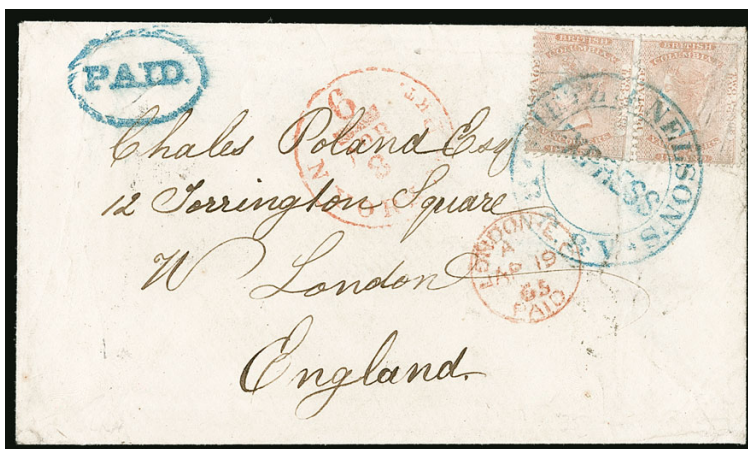 PAID.
BRITISH
COLUMBIA
BRITISH
COLUMBIA
NELSON'S
EXPRESS
V.I. & S.
6
APR
8
N YORK PKT
Chales Poland Esq
12 Torrington Square
W London
England.
LONDON E.C.
A
AP 19
65
PAID